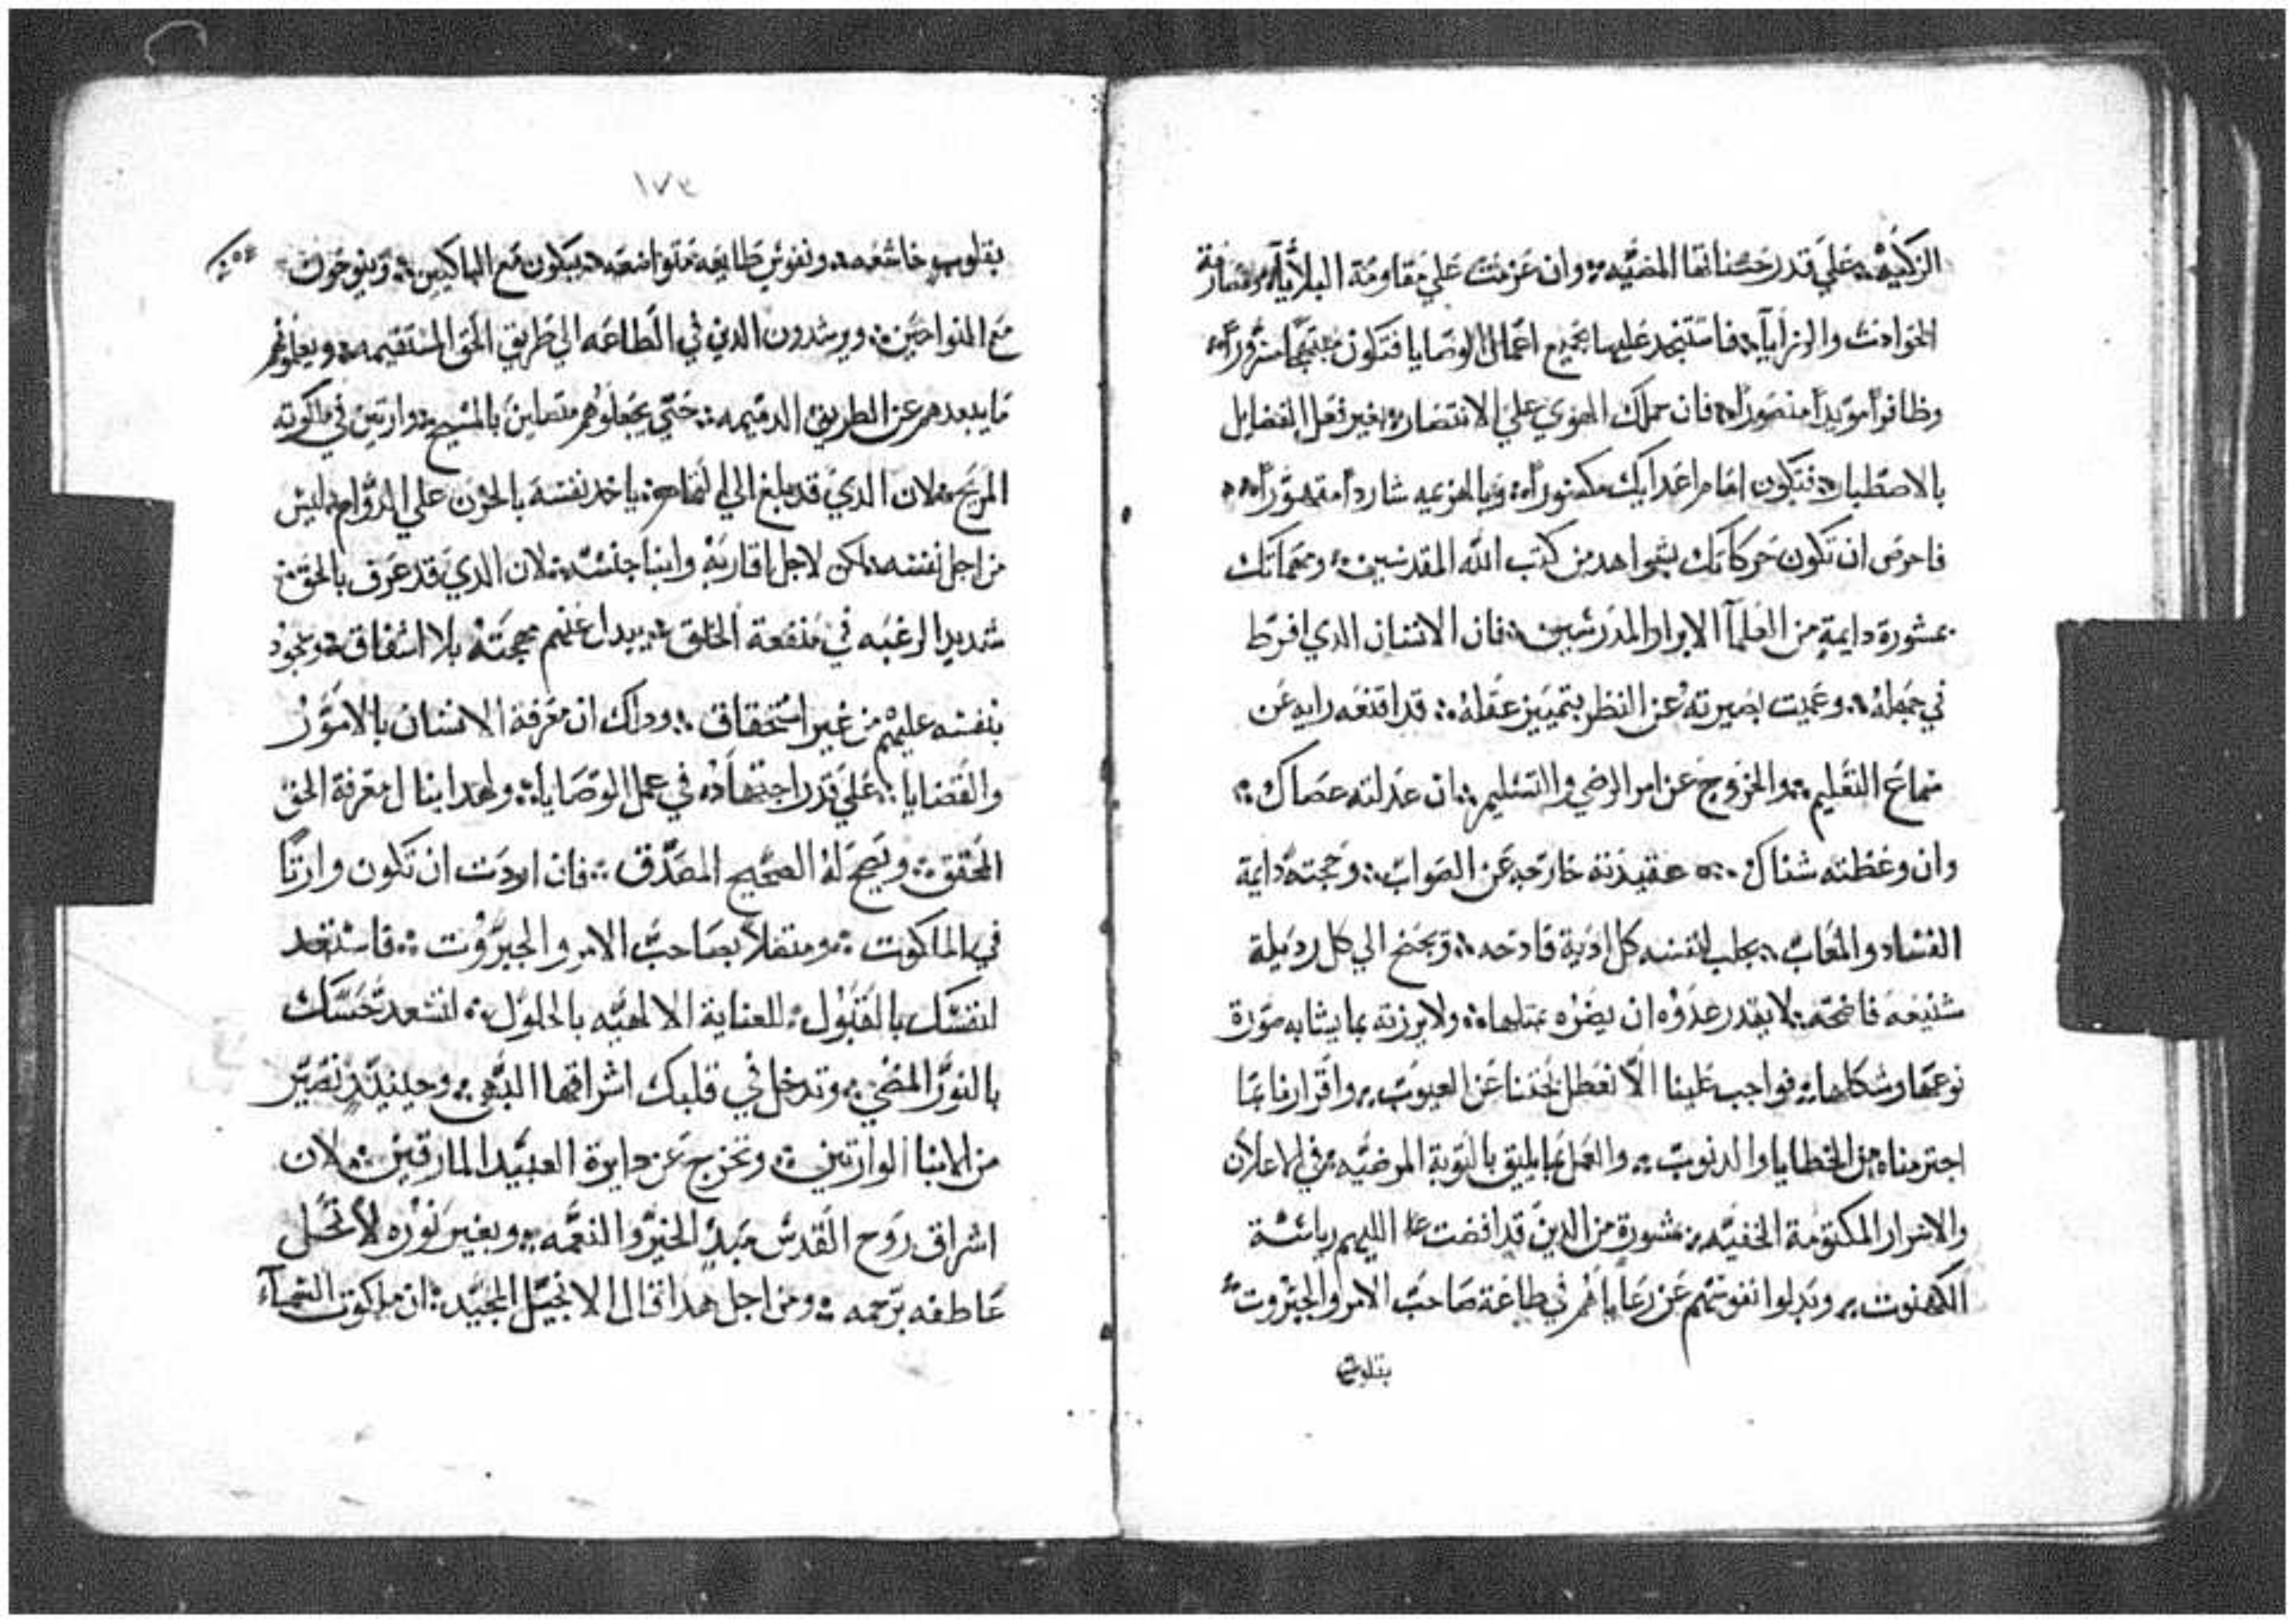 الزكيه علي قدر حسناتها المضيه وان عزمت علي مقاومة البلايا ومصارفة
الحوادث والرزايا فاستنجد عليها بجميع اعمال الوصايا فتكون مبتهجا مسرورا
وظافرا مويدا منصورا فان حملك الهوي علي الانتصار بغير فعل الفضايل
بالاصطبار فتكون امام اعدايك مكسورا وبالهزيمه شاردا متهورا
فاحرص ان تكون حركاتك بشواهد من كتب الله المقدسين وعزماتك
بمشورة دايمة من العلمآ الابرار المدرسين فان الانسان الدي افرط
في جهله وعميت بصيرته عن النظر بتمييز عقله قد اقنعه رايه عن
سماع التعليم والخروج عن امر الرضي والتسليم ان عدلته عصاك
وان وعظته شناك عقيدته خارجه عن الصواب وحجته دايمة
الفساد والمعاب يجلب لنفسه كل ادية قادحه ويجنح الي كل رديلة
شنيعه فاضحه لا يقدر عدوه ان يضره بمتلها ولا يرزته بما يشابه صورة
نوعها وشكلها فواجب علينا الا نغطل بحتنا عن العيوب واقرارنا بما
اجترمناه من الخطايا والدنوب والعمل بما يليق بالتوبة المرضيه في الاعلان
والاسرار المكتومة الخفيه بمشورة من الدين قد افضت اليهم رياسة
الكهنوت وبدلوا نفوسهم عن رعاياهم في طاعة صاحب الامر والجبروت
بقلوب
١٧٣
بقلوب خاشعه ونفوس طايعه متواضعه يبكون مع الباكيين وينوحون
مع النواحين ويرشدون الدين في الطاعه الي طريق الحق المستقيمه ويعلموهم
ما يبعدهم عن الطريق الدميمه حتي يجعلوهم متصلين بالمسيح وارتين في ملكوته
المريح لان الدي قد بلغ الي التمام ياخد نفسه بالحزن علي الدوام ليس
من اجل نفسه لكن لاجل اقاربه وابنا جنسه لان الدي قد عرف بالحق
شديد الرغبه في منفعة الخلق يبدل عنهم مهجته بلا اشفاق ويجود
بنفسه عليهم من غير استحقاق ودلك ان معرفة الانسان بالامور
والقضايا علي قدر اجتهاده في عمل الوصايا ولهدا ينال معرفة الحق
المحقق ويصح له الصحيح المصدق فان اردت ان تكون وارتا
في الملكوت ومتصلا بصاحب الامر والجبروت فاستعد
لنفسك بالقبول للعناية الالهيه بالحلول لتسعد حسك
بالنور المضي وتدخل في قلبك اشراقها البهي وحينيد تصير
من الابنا الوارتين وتخرج عن دايرة العبيد المارقين لان
اشراق روح القدس مبدي الخير والنعمه وبغير نوره لا تحل
عاطفه برحمه ومن اجل هدا قال الانجيل المجيد ان ملكوت السمآء